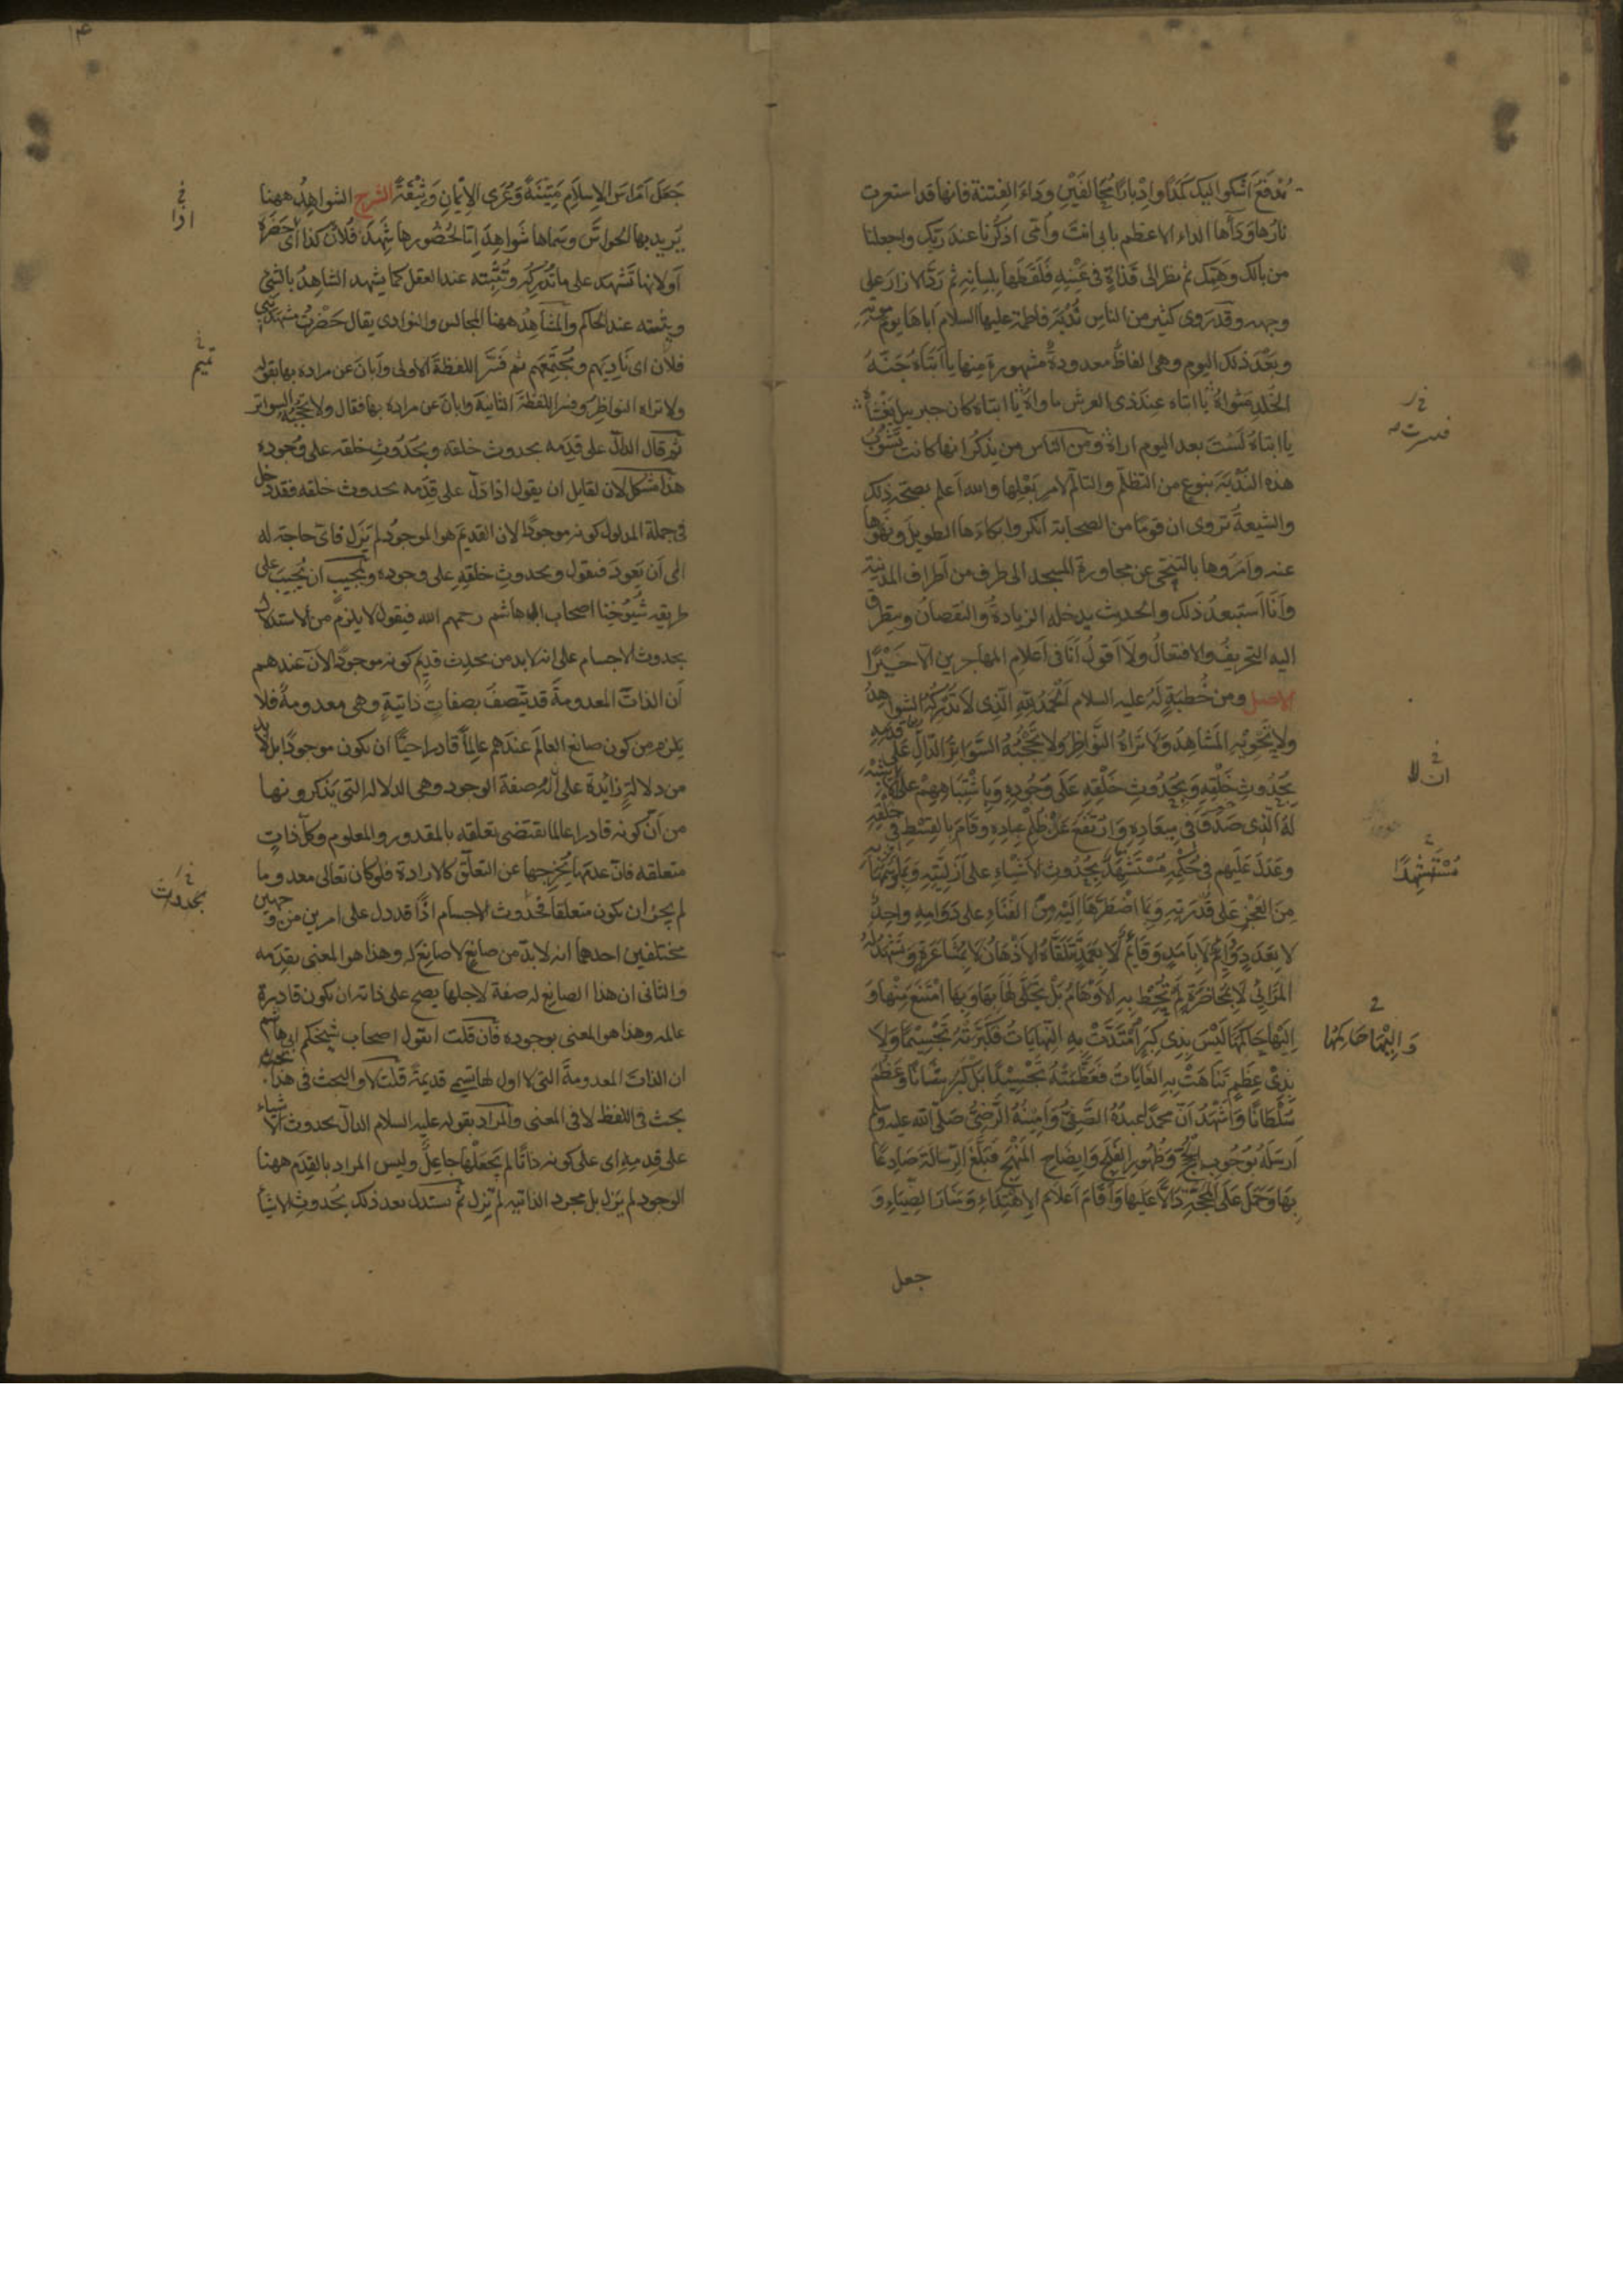 مُندفعَ اشكوا اليك كمدًا وادبارًا مُخالفَيْنِ وداءَ الفِتنة فانها قد استعرت
نارُها وَدَاؤها الداء الاعظم بابى انتَ وامّى اذكرنا عند ربّك واجعلنا
من بالك وهَمِّك ثم نظر الى قذاةٍ فى عَيْنِهِ فلفَظَها بلِسانِهِ ثم رَدَّ الازارَ على
وجهه وقد رَوى كثير من الناسِ نُدْبَةَ فاطمة عليها السلام اباها يوم موته
وبَعْدَ ذلك اليوم وهى الفاظٌ معدودةٌ مشهورة مِنها يا ابتاهُ جَنّةُ
الخُلدِ مَثواهُ يا ابتاه عِندَ ذى العرش ماواهُ يا ابتاه كان جبرييل يَغشاهُ
يا ابتاهُ لَسْتَ بعد اليوم اراهُ ومن الناس من يذكر انها كانت تَشُوبُ
هذه النُّدْبَةَ بنوعٍ من التظلّم والتالّم لامرٍ بَعْلِها والله اَعلم بصحّة ذلك
والشيعةُ تروى ان قومًا من الصحابة انكروا بكاءَها الطويلَ ونَهَوْها
عنه وامَرَوها بالتنحّى عن مجاورة المسجد الى طرف من اطراف المدينة
واَنَا اَستبعدُ ذلك والحديث يدخله الزيادةُ والنقصانُ ويتطرق
اليه التحريفُ والافتعالُ ولَا اَقولُ اَنَا فى اَعلامِ المهاجرين الّا خَيْرًا
الاصل ومن خُطبَةٍ لَهُ عليه السلام اَلْحَمْدُ لِلّهِ الَّذِى لَا تُدْرِكُهُ الشواهِدُ
ولا تَحْوِيْهِ المَشَاهِدُ وَلَا تَرَاهُ النَّوَاظِرُ وَلَا تَحْجُبُهُ السَّوَاتِرُ الدَّالِّ عَلَى قِدَمِهِ
بِحُدُوثِ خَلْقِهِ وَبِحُدُوثِ خَلْقِهِ عَلَى وُجُودِهِ وَبِاشْتِبَاهِهِمْ عَلَى اَنْ لَا شَبَهَ
لَهُ الَّذِى صَدَقَ فى مِيعَادِهِ وَارْتَفَعَ عَنْ ظُلْمِ عِبادِهِ وقَامَ بِالقِسْطِ فى خَلْقِهِ
وَعَدَلَ عَلَيهم فى حُكْمِهِ مُسْتَشْهِدٌ بِحُدُوثِ الاَشْيَاءِ على اَزَلِيَّتِهِ وَبِمَا وَسَمَهَا بِهِ
مِنَ العَجْزِ عَلى قُدْرَتِهِ وَبِمَا اضْطَرَّهَا اِلَيْهِ مِنَ الفَنَاءِ على دَوَامِهِ واحِدٌ
لا بِعَدَدٍ وَدَائِمٌ لا بِاَمَدٍ وَقَائِمٌ لَا بِعَمَدٍ تَتَلَقَّاهُ الاَذْهَانُ لَا بِمُشَاعَرَةٍ وَتَشْهَدُ لَهُ
المَرَائِى لَا بِمُحَاضَرَةٍ لَمْ تُحِطْ بِهِ الاَوْهَامُ بَلْ تَجَلَّى لَهَا بِهَا وَبِهَا امْتَنَعَ مِنْهَا وَ
اِلَيْهَا حَاكَمَهَا لَيْسَ بِذِى كِبَرٍ امْتَدَّتْ بِهِ النِّهَايَاتُ فَكَبَّرَتْهُ تَجْسِيْمًا وَلَا
بِذِىْ عِظَمٍ تَنَاهَتْ بِهِ الغَايَاتُ فَعَظَّمَتْهُ تَجْسِيْدًا بَلْ كَبُرَ شَانًا وَعَظُمَ
سُلْطَانًا وَاَشْهَدُ اَنَّ محمّدًا عبدُهُ الصَّفِىُّ وَاَمِيْنُهُ الرَّضِىُّ صَلّى الله عليه وسلم
اَرسَلَهُ بِوُجُوبِ الحُجَجِ وَظُهُورِ الفَلَجِ وَايضَاحِ المَنْهَجِ فَبَلَّغَ الرِّسَالَةَ صَادِعًا
بِهَا وَحَمَلَ عَلَى المَحَجَّةِ دَالًّا عَلَيْهَا وَاَقَامَ اَعْلَامَ الاِهْتِدَاءِ وَمَنَارَ الضِّيَاءِ وَ
جعل
ان لا
مُسْتَشْهِدًا
وَاِلَيْهَا حَاكَمَهَا
جَعَلَ اَمْرَاسَ الاِسلَامِ مَتِيْنَةً وَعُرَى الاِيْمانِ وَثِيْقَةً الشرح الشواهِدُ ههنا
يُريد بها الحواسّ وسماها شَواهِدَ امّا لحُضُورِها شَهِدَ فُلانٌ كذا اى حَضَرَهُ
اَو لانها تَشهَد على ما تُدرِكُه وتُثبِته عند العقل كما يشهد الشاهِدُ بالشئ
ويثبته عند الحاكم والمشاهِدُ ههنا المجالس والنوادى يقال حَضَرْتُ مشهدَ بنى
فلان اى نَادِيَهم ومُجتَمَعَهم ثم فَسَّرَ اللفظةَ الاولى واَبانَ عن مراده بها بقوله
ولا تراه النواظِرُ وفسر اللفظةَ الثانيةَ وابانَ عن مراده بها فقال ولا تحجبُهُ السواتر
ثم قال الدالّ على قِدَمه بحدوث خلقه وبحُدُوثِ خلقه على وُجوده
هذا مشكل لان لقايل ان يقول اذا دَلّ على قِدَمه بحدوث خلقه فقد دخل
فى جملة المدلول كونه موجودًا لان القديمَ هو الموجودُ لم يَزَل فاىّ حاجة له
الى اَن يَعودَ فيقول وبحدوثِ خلقِهِ على وجوده ولمجيبٍ ان يُجيبَ على
طريقة شُيُوخِنا اصحاب ابى هاشم رحمهم الله فيقول لا يلزم من الاستدلال
بحدوث الاجسام على انه لا بد من محدِث قديمٍ كونه موجودًا لانّ عندهم
اَن الذاتَ المعدومةَ قد يتّصفُ بصفاتٍ ذاتيةٍ وهى معدومةٌ فلا
يلزم من كون صانع العالَم عندهم عالِمًا قادرا حيًّا ان يكون موجودًا بل لا بد
من دلالةٍ زايدة على اَن له صفة الوجود وهى الدلاله التى يَذكرونها
من اَنّ كونه قادرا عالما يقتضى تعلقه بالمقدور والمعلوم وكلّ ذاتٍ
متعلقه فانّ عدمَها يُخرجها عن التعلّق كالارادة فلو كان تعالى معدوما
لم يجز ان يكون متعلقا فحُدوث الاجسام اذًا قد دل على امرين من وجهين
مختلفين احدهما انه لا بدّ من صانعٍ لا صانِعَ له وهذا هو المعنى بقِدَمه
والثانى ان هذا الصانِعَ له صفة لاجلها يصح على ذاته ان يكون قادرة
عالمه وهذا هو المعنى بوجوده فان قلت ايقول اصحاب شيخكم ابى هاشم
ان الذاتَ المعدومةَ التى لا اول لها تسمى قديمةً قلت لا والبحث فى هذا
بحث فى اللفظ لا فى المعنى والمراد بقوله عليه السلام الدالّ بحدوث الاشياء
على قدمِهِ اى على كونه ذاتًا لم يَجعَلها جاعِلٌ وليس المراد بالقِدَم ههنا
الوجود لم يزل بل مجرد الذاتيه لم يَزل ثم يستدل بعد ذلك بحُدوثِ الاشيا
اذا
تميم
بحدوث